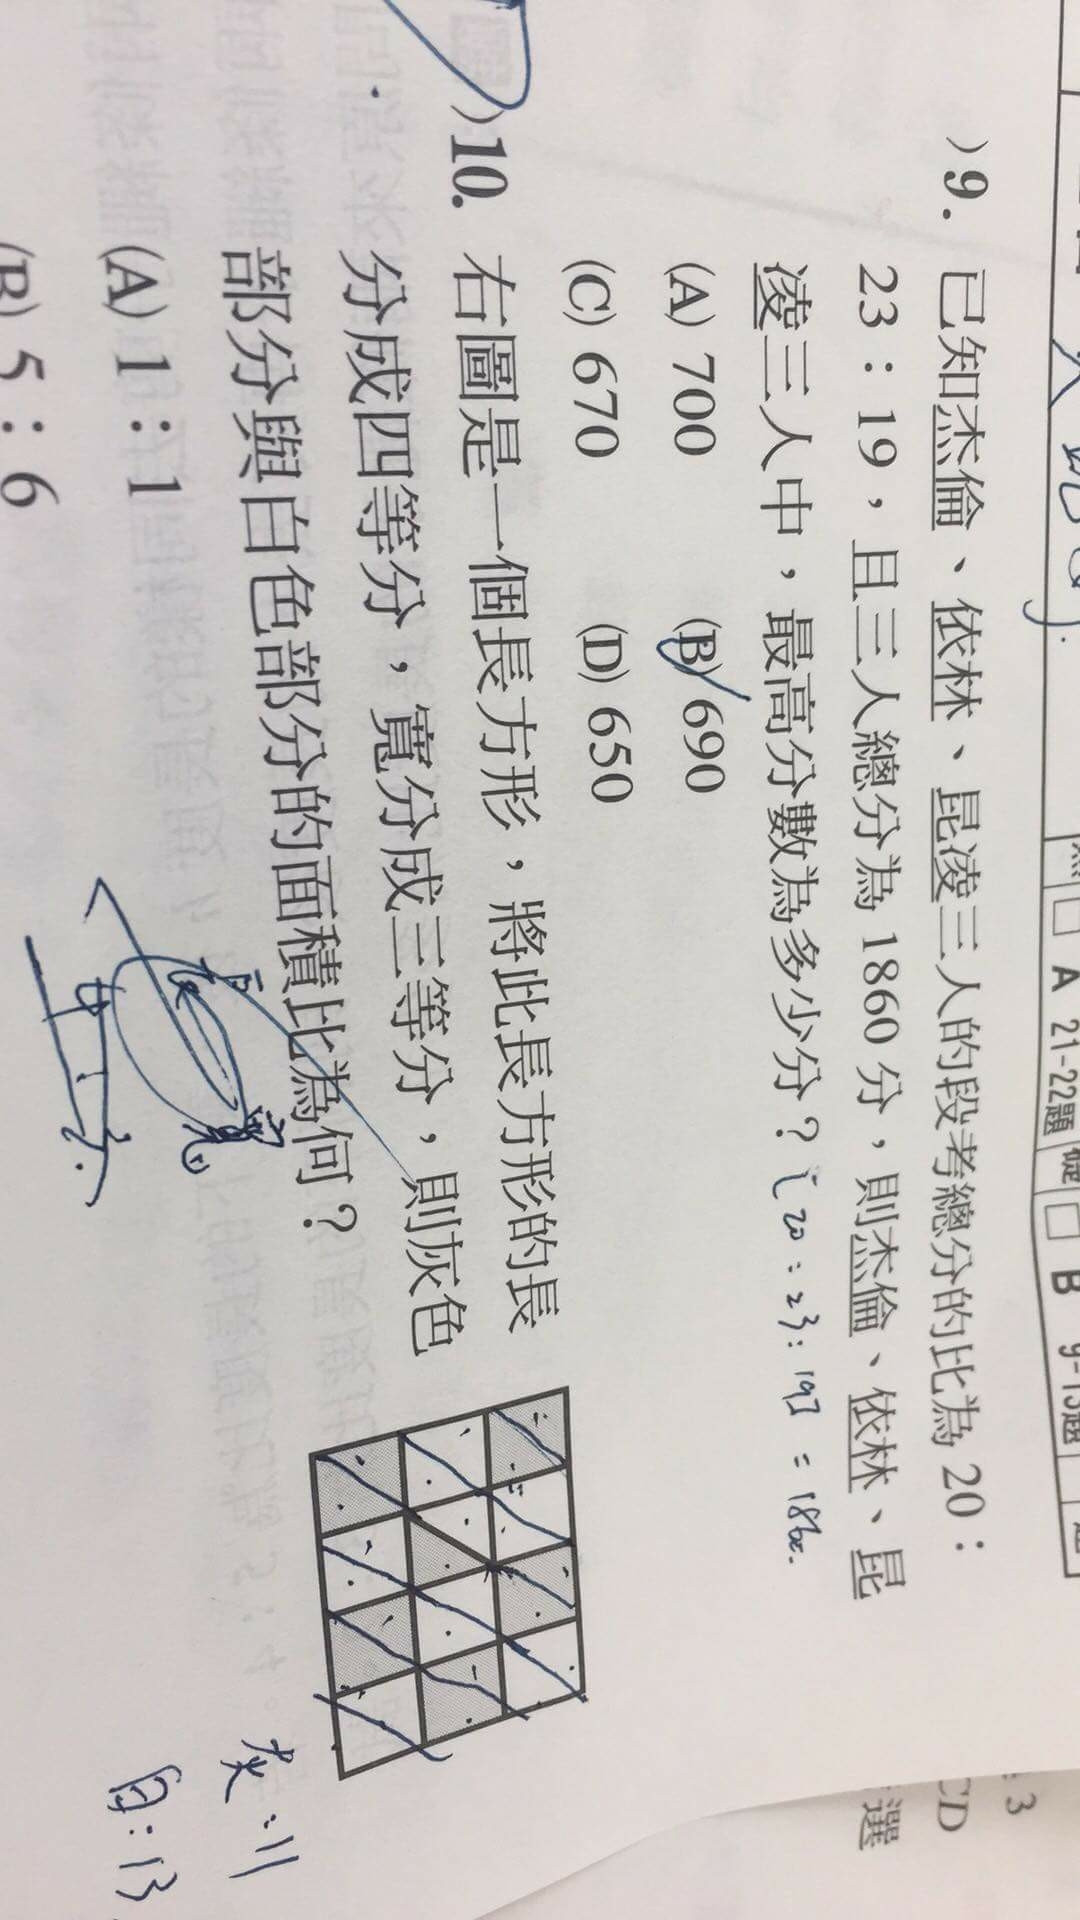 A 21-22題 礎 □ B 9-13題
)9. 已知杰倫、依林、昆凌三人的段考總分的比為 20：
23：19，且三人總分為 1860 分，則杰倫、依林、昆
凌三人中，最高分數為多少分？ [20：23：19] = 1860.
(A) 700 (B) 690
(C) 670 (D) 650
)10. 右圖是一個長方形，將此長方形的長
分成四等分，寬分成三等分，則灰色
部分與白色部分的面積比為何？
(A) 1：1
(B) 5：6
灰：11
白：13
：3
CD
選